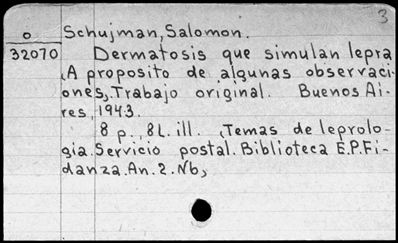 3
o Schujman, Salomon.
32070 Dermatosis que simulan lepra
(A proposito de algunas observaci-
ones). Trabajo original. Buenos Ai-
res, 1943.
8 p., 8 L. ill. (Temas de leprolo-
gia. Servicio postal. Biblioteca E.P. Fi-
danza. An. 2. Nb)